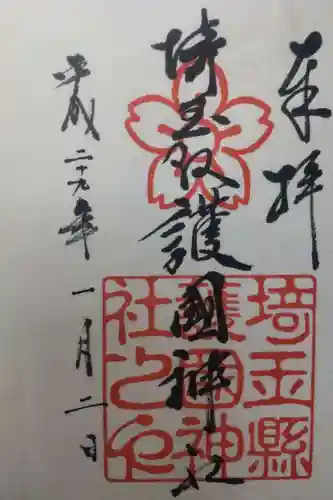 奉拝
埼玉縣護國神社
平成二十九年
一月二日
埼玉縣
護國神
社之印